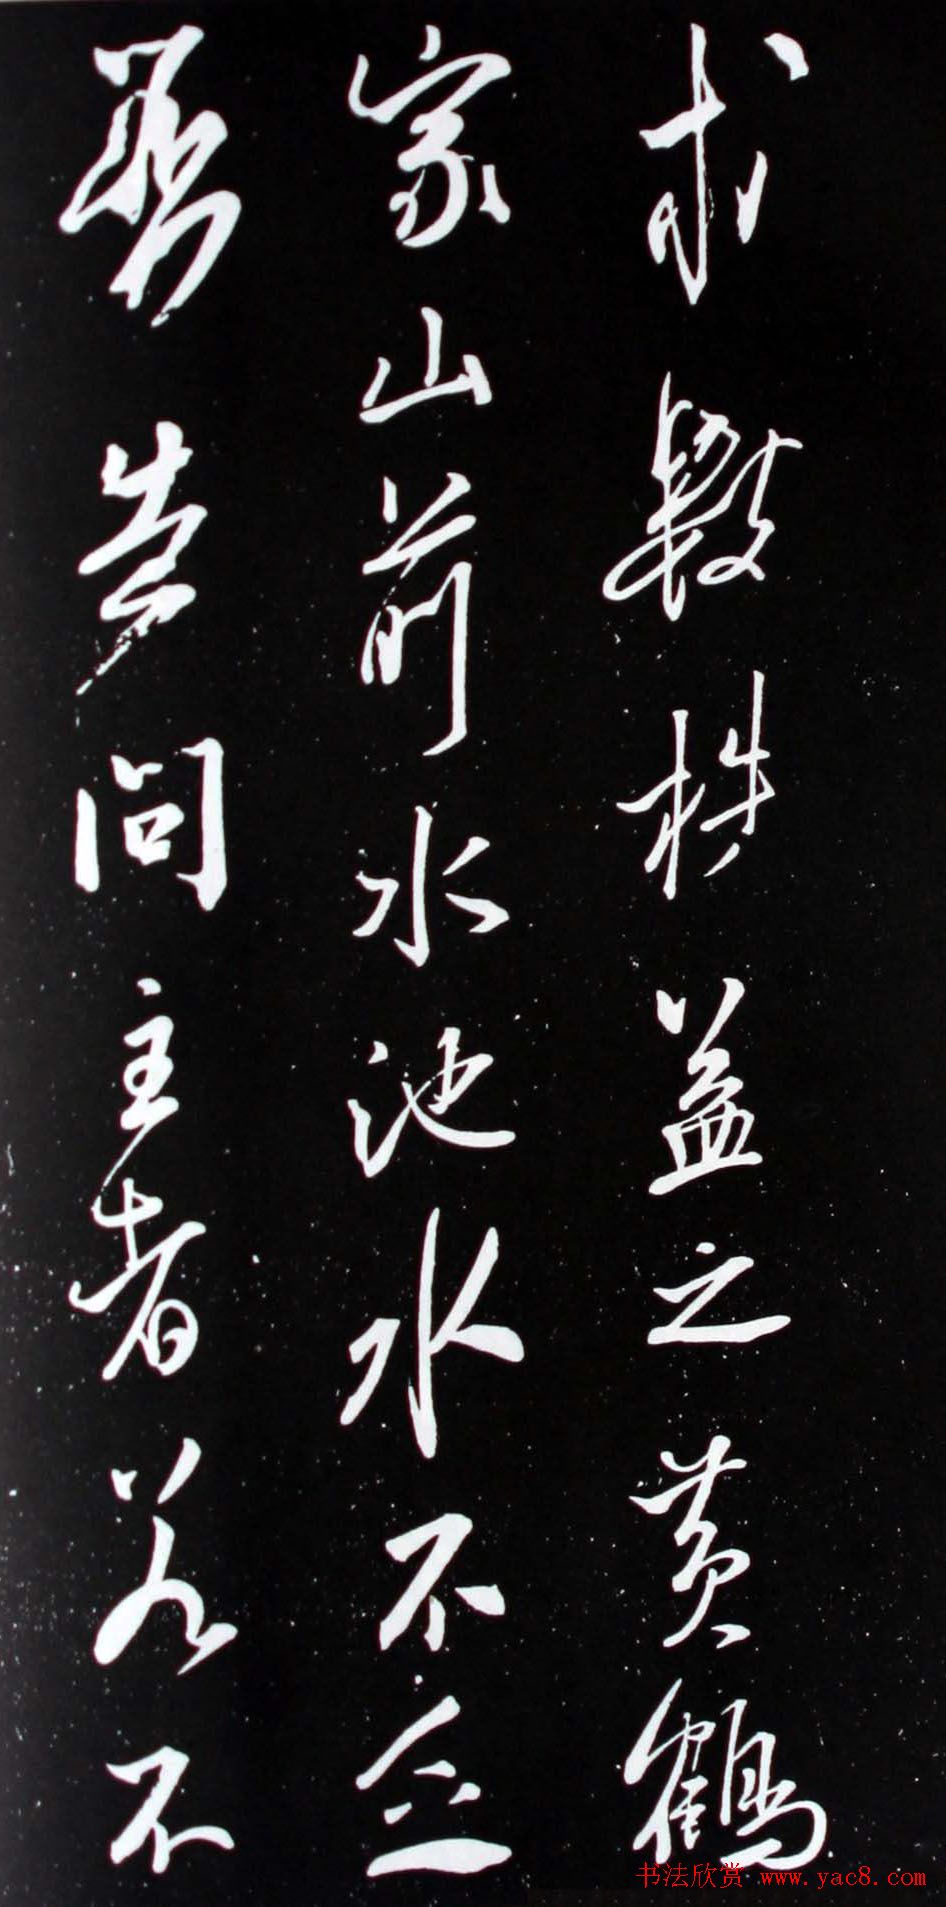 求數株益之黃鶴
家山前水池水不
問主者若不
书法欣赏 www.yac8.com